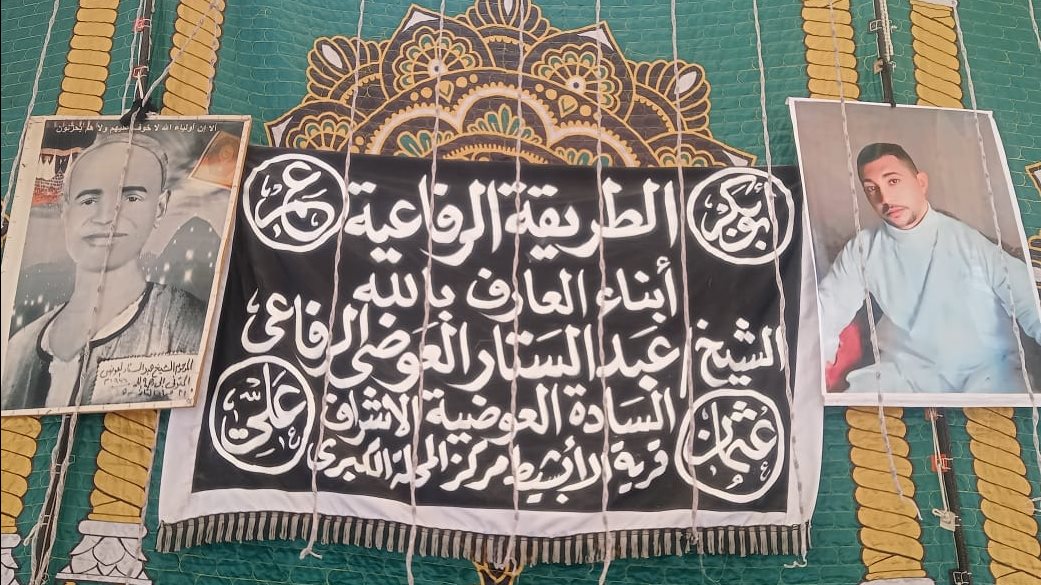 ألا إن أولياء الله لا خوف عليهم ولا هم يحزنون
أبوبكر
عمر
الطريقة الرفاعية
أبناء العارف بالله
الشيخ عبد الستار العوضى الرفاعى
السادة العوضية الاشراف
قرية الأبشيط مركز المحلة الكبرى
عثمان
علي
المرحوم الشيخ عبد الستار